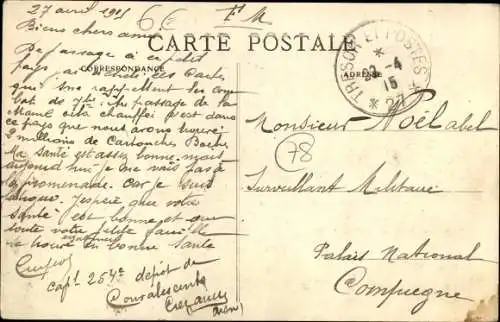 27 avril 1915
F M
Biens chers amis
CARTE POSTALE
CORRESPONDANCE
ADRESSE
TRESOR ET POSTES
28 - 4
15
De passage à ce petit
pays cartes
qui me rappellent les com
bat de passage de la
Marne c'est dans
ce pays que nous avons trouvé
2 millions de Cartouches Boches
Ma santé est assez bonne mais
aujourd hui je ne vais pas à
la promenade. Car je suis
fatigué. J'espère que votre
santé est bonne et que
toute votre petite famille
se trouve en bonne santé
Capl 254e dépôt de
Convalescents
Crezancy
Aisne)
Monsieur Noël abel
78
Surveillant Militaire
Palais National
Compiegne